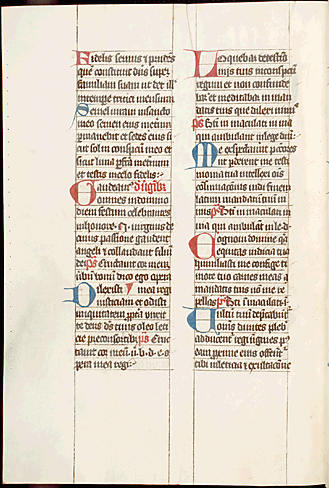 Fidelis seruus et prudens
que constituit dns super
familiam suam ut det illi
in tempore tritici mensuram
Semel iuraui in sancto
meo semen eius in eternum
manebit et sedes eius si
cut sol in conspectu meo et
sicut luna perfecta in eternum
et testis in celo fidelis
Gaudeamus
omnes in domino
diem festum celebrantes
in honore N uirginis de
cuius passione gaudent
angeli et collaudant filium
dei ps Eructauit cor meum
uerbum bonum dico ego opera
Dilexisti mea regi
iusticiam et odisti
iniquitatem propterea unxit
te deus ds tuus oleo leti
cie pre consortibus ps Eruc
tauit cor meum u b d e o
opera mea regi
Loquebar de testimo
niis tuis in conspectu
regum et non confunde
bar et meditabar in man
datis tuis que dilexi nimis
ps Beati in maculati in uia
qui ambulant in lege dni
Me expectauerunt peccatores
ut perderent me testi
monia tua intellexi ois
consumacionis uidi finem
latum mandatum tuum ni
mis ps Beati in maculati in
uia qui ambulant in le d
Cognoui domine quia
equitas iudicia tua
humiliasti me confige ti
more tuo carnes meas a
mandatis tuis non me re
pellas ps Beati in maculati i
Uultum tuum deprecabuntur
omnes diuites plebis
adducentur regi uirgines post
eam proxime eius offerentur
tibi in leticia et exultacione